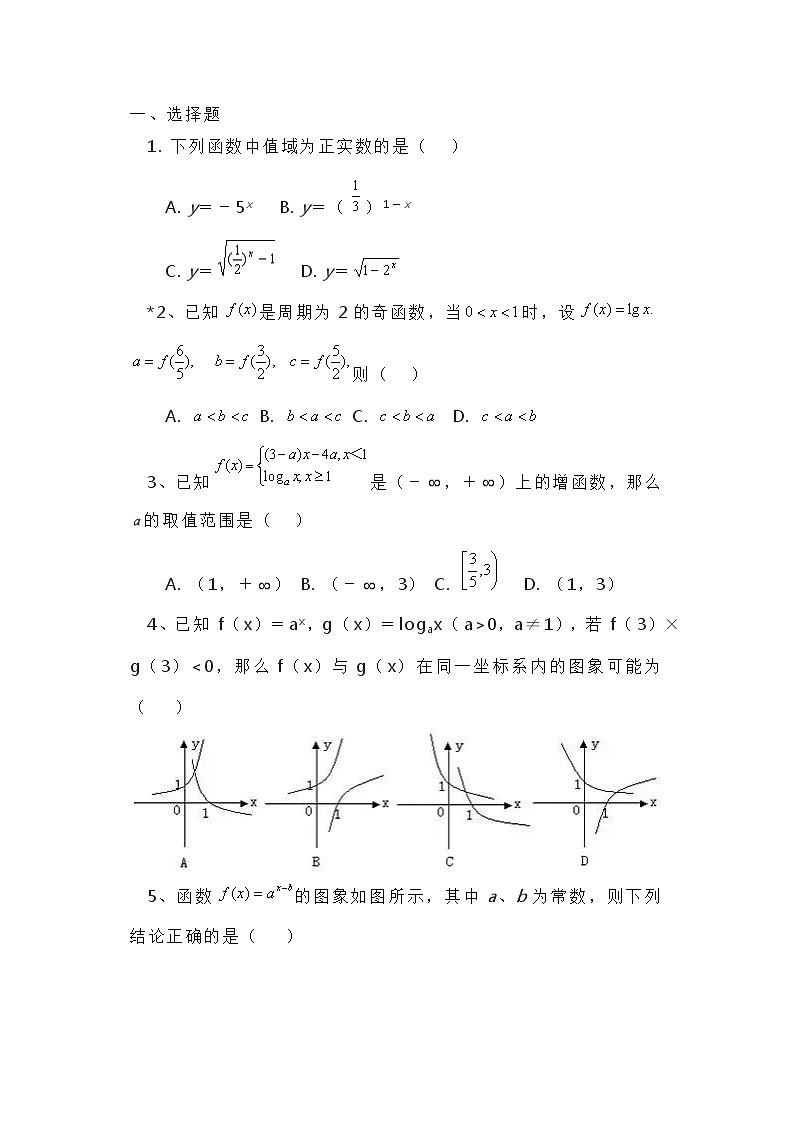 一、选择题
1. 下列函数中值域为正实数的是（ ）
A. y=－5ˣ B. y=（1/3）¹⁻ˣ
C. y=√((1/2)ˣ－1) D. y=√(1－2ˣ)
*2、已知 f(x)是周期为 2 的奇函数，当0<x<1时，设 f(x)=lg x.
a=f(6/5), b=f(3/2), c=f(5/2),则（ ）
A. a<b<c B. b<a<c C. c<b<a D. c<a<b
3、已知 f(x)={(3－a)x－4a,x<1 logₐ x, x≥1 是（－∞，＋∞）上的增函数，那么
a的取值范围是（ ）
A. （1，＋∞） B. （－∞，3） C. [3/5,3) D. （1，3）
4、已知 f（x）=aˣ，g（x）=logₐx（a>0，a≠1），若 f（3）×
g（3）<0，那么 f（x）与 g（x）在同一坐标系内的图象可能为
（ ）
y y y y
1 1 1 1
0 1 x 0 1 x 0 1 x 0 1 x
A B C D
5、函数 f(x)=aˣ⁻ᵇ的图象如图所示，其中 a、b 为常数，则下列
结论正确的是（ ）